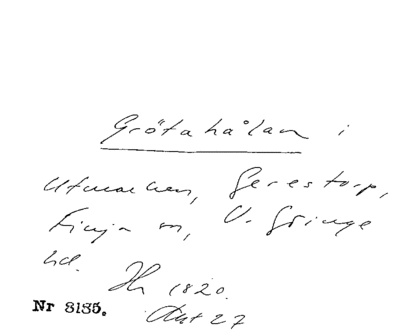 Grötahålan i
Utmarken, Gerestorp,
Finja sn, V. Göinge
hd.
Hr 1820.
Akt 27
Nr 8185.